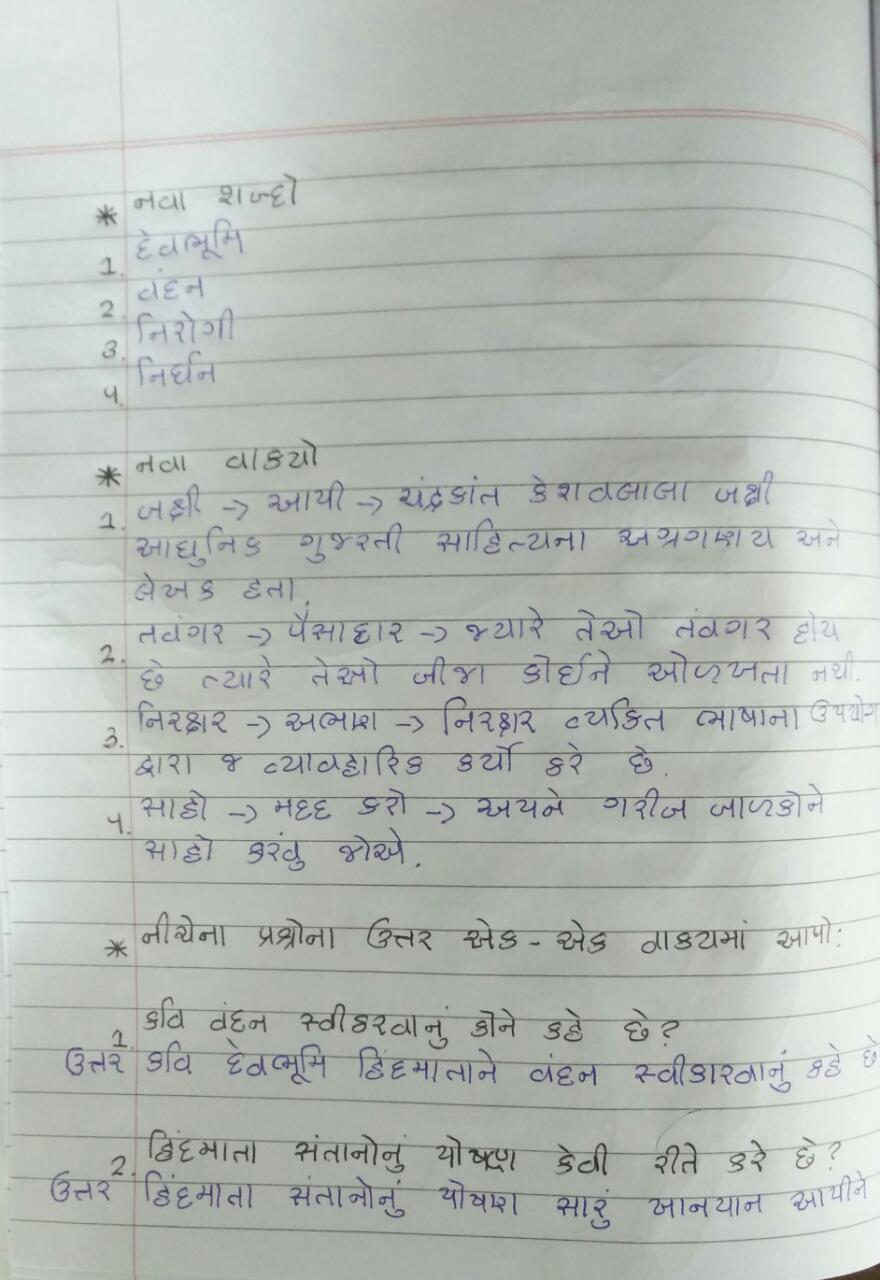 * નવા શબ્દો
1. દેવભૂમિ
2. વંદન
3. નિરોગી
4. નિર્ધન
* નવા વાક્યો
1. બક્ષી -> આપી -> ચંદ્રકાંત કેશવલાલા બક્ષી
આધુનિક ગુજરતી સાહિત્યના અગ્રગણય અને
લેખક હતા.
2. તવંગર -> પૈસાદાર -> જ્યારે તેઓ તંવગર હોય
છે ત્યારે તેઓ બીજા કોઈને ઓળખતા નથી.
3. નિરક્ષર -> અભણ -> નિરક્ષર વ્યકિત ભાષાના ઉપયોગ
દ્વારા જ વ્યાવહારિક કર્યો કરે છે.
4. સાહો -> મદદ કરો -> અપને ગરીબ બાળકોને
સાહો કરવું જોએ.
* નીચેના પ્રશ્નોના ઉત્તર એક - એક વાકયમાં આપો:
1. કવિ વંદન સ્વીકરવાનું કોને કહે છે?
ઉત્તર કવિ દેવભૂમિ હિંદમાતાને વંદન સ્વીકારવાનું કહે છે
2. હિંદમાતા સંતાનોનું પોષણ કેવી રીતે કરે છે?
ઉત્તર હિંદમાતા સંતાનોનું પોષણ સારું ખાનપાન આપીને